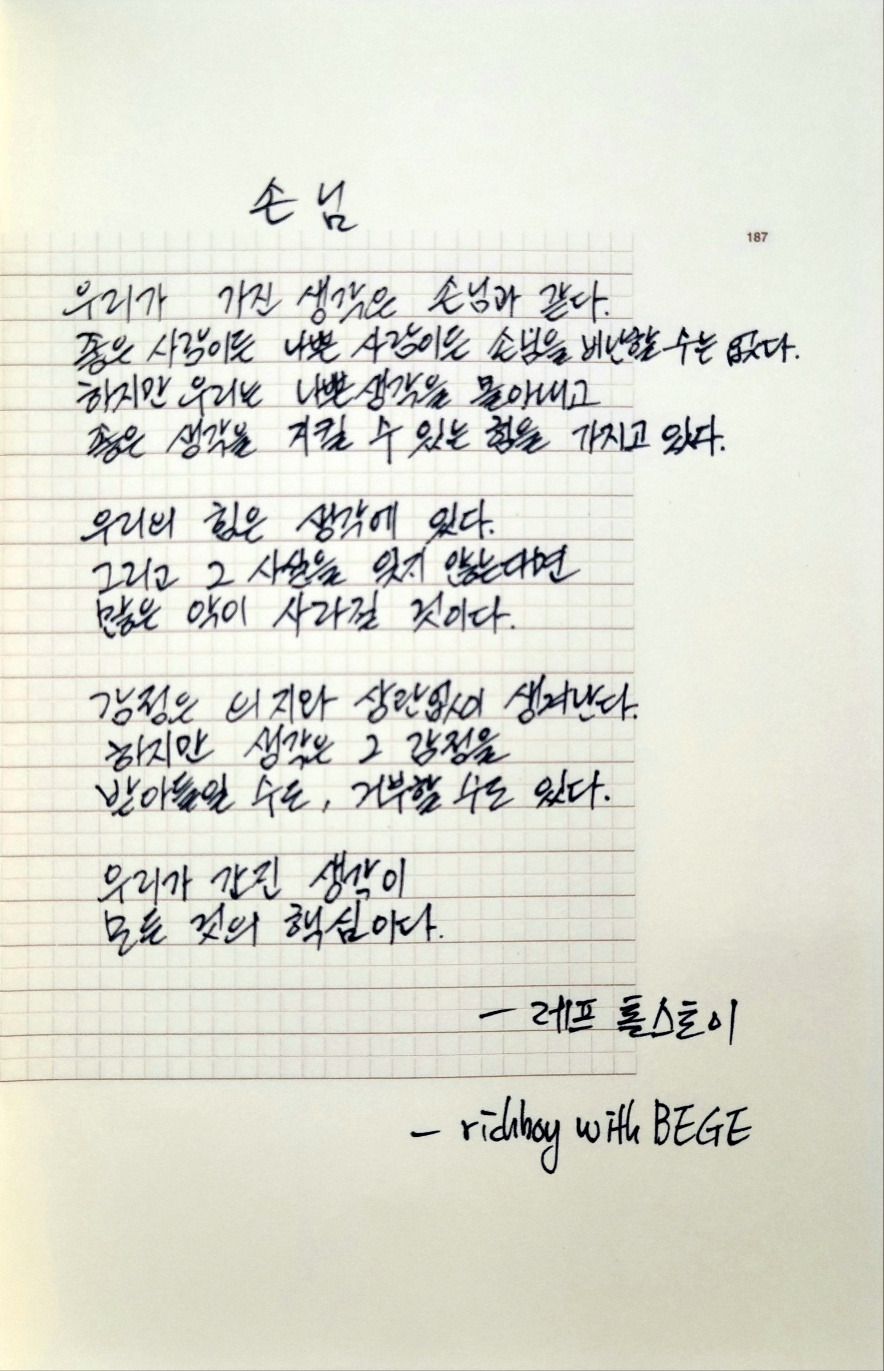 손님
187
우리가 가진 생각은 손님과 같다.
좋은 사람이든 나쁜 사람이든 손님을 비난할 수는 없다.
하지만 우리는 나쁜 생각을 몰아내고
좋은 생각을 지킬 수 있는 힘을 가지고 있다.
우리의 힘은 생각에 있다.
그리고 그 사실을 잊지 않는다면
많은 악이 사라질 것이다.
감정은 의지와 상관없이 생겨난다.
하지만 생각은 그 감정을
받아들일 수도, 거부할 수도 있다.
우리가 가진 생각이
모든 것의 핵심이다.
- 레프 톨스토이
- richboy with BEGE